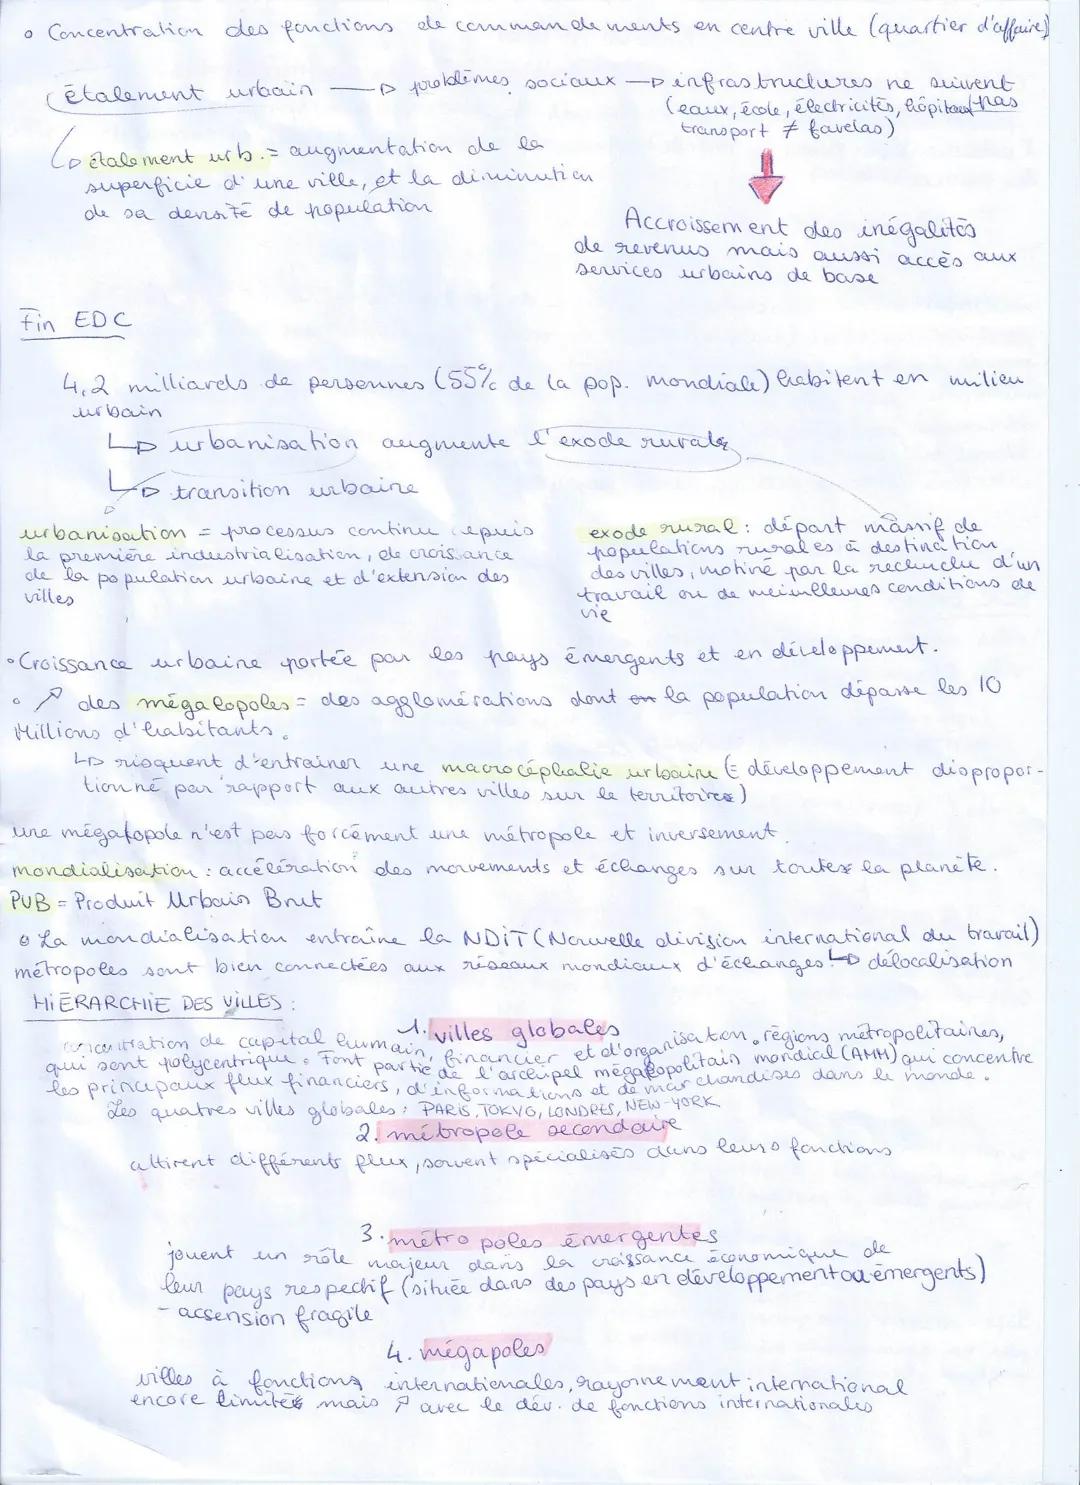 • Concentration des fonctions de commandements en centre ville (quartier d'affaire)
étalement urbain → problèmes sociaux → infrastructures ne suivent pas
(eaux, école, électricités, hôpitaux
transport ≠ favelas)
↳ étalement urb. = augmentation de la
superficie d'une ville, et la diminution
de sa densité de population
Accroissement des inégalités
de revenus mais aussi accès aux
services urbains de base
Fin EDC
4,2 milliards de personnes (55% de la pop. mondiale) habitent en milieu
urbain
↳ urbanisation augmente l'exode rurale
↳ transition urbaine
urbanisation = processus continu depuis
la première industrialisation, de croissance
de la population urbaine et d'extension des
villes
exode rural : départ massif de
populations rurales à destination
des villes, motivé par la recherche d'un
travail ou de meilleures conditions de
vie
• Croissance urbaine portée par les pays émergents et en développement.
• ↗ des mégalopoles = des agglomérations dont la population dépasse les 10
Millions d'habitants.
↳ risquent d'entrainer une macrocéphalie urbaine (= développement dispropor-
tionné par rapport aux autres villes sur le territoires)
une mégalopole n'est pas forcément une métropole et inversement.
mondialisation : accélération des mouvements et échanges sur toutes la planète.
PUB = Produit Urbain Brut
• La mondialisation entraîne la NDiT (Nouvelle division international du travail)
métropoles sont bien connectées aux réseaux mondiaux d'échanges. ↳ délocalisation
HiÉRARCHIE DES ViLLES :
1. villes globales
concentration de capital humain, financier et d'organisation, régions métropolitaines,
qui sont polycentrique. Font partie de l'archipel mégalopolitain mondial (AMM) qui concentre
les principaux flux financiers, d'informations et de marchandises dans le monde.
Les quatres villes globales : PARiS, TOKYO, LONDRES, NEW-YORK
2. métropole secondaire
attirent différents flux, souvent spécialisés dans leurs fonctions
3. métropoles émergentes
jouent un rôle majeur dans la croissance économique de
leur pays respectif (située dans des pays en développement ou émergents)
- acsension fragile
4. mégapoles
villes à fonctions internationales, rayonnement international
encore limités mais ↗ avec le dév. de fonctions internationales